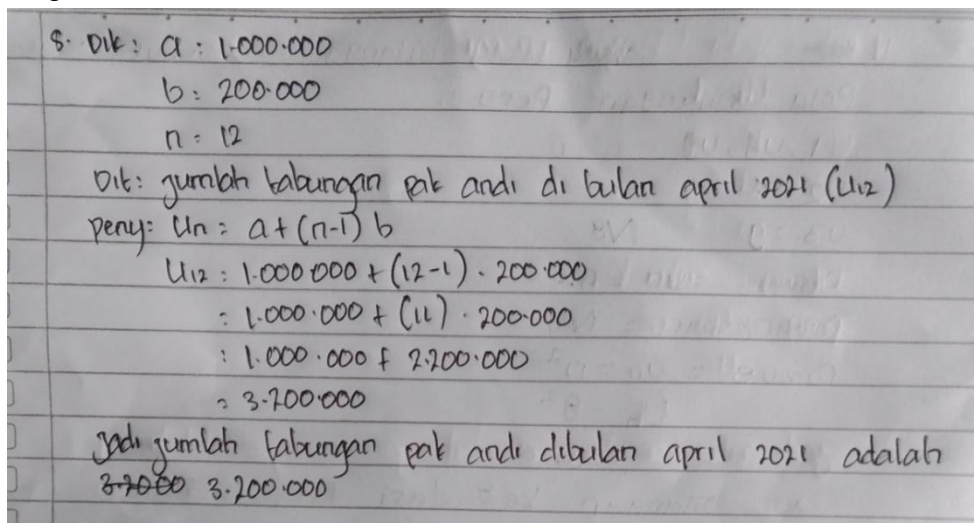 8. Dik : a : 1.000.000
b : 200.000
n = 12
Dit : Jumlah tabungan pak andi di bulan april 2021 (U12)
peny : Un = a + (n-1) b
U12 : 1.000.000 + (12-1) . 200.000
: 1.000.000 + (11) . 200.000
: 1.000.000 + 2.200.000
= 3.200.000
Jadi jumlah tabungan pak andi dibulan april 2021 adalah
3.2000 3.200.000